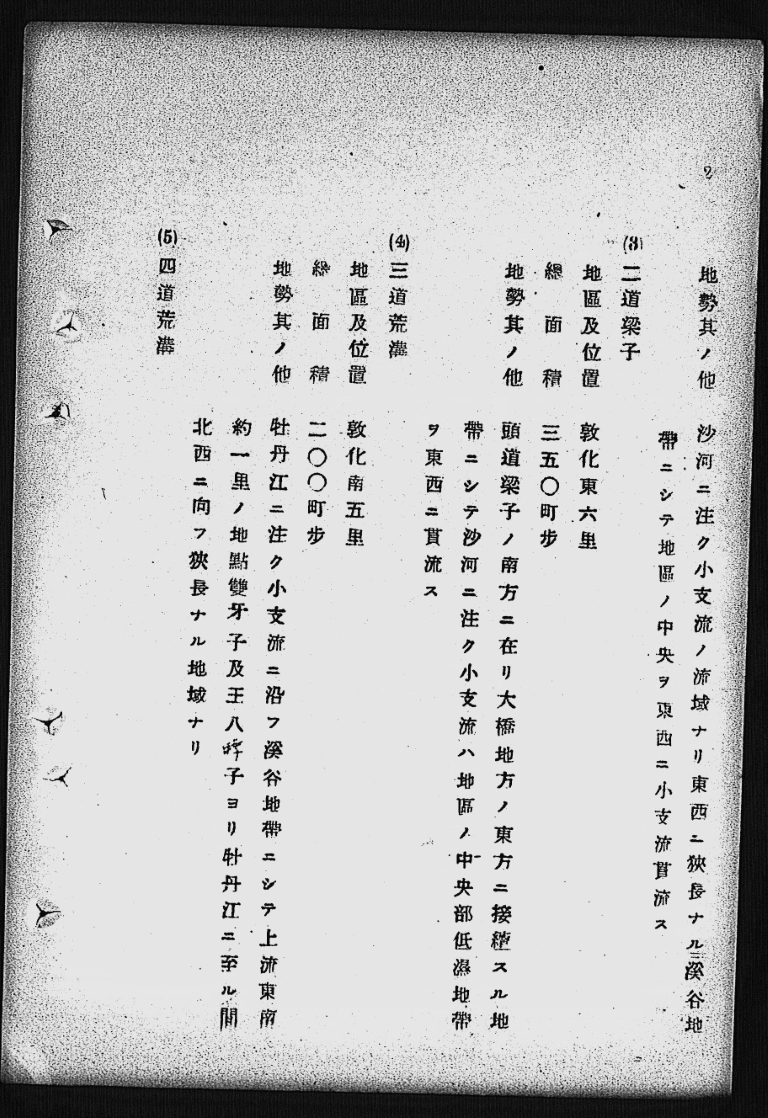 2
地勢其ノ他　沙河ニ注ク小支流ノ流域ナリ東西ニ狹長ナル溪谷地
帶ニシテ地區ノ中央ヲ東西ニ小支流貫流ス
(3) 二道梁子
地區及位置　敦化東六里
總面積　三五〇町步
地勢其ノ他　頭道梁子ノ南方ニ在リ大橋地方ノ東方ニ接續スル地
帶ニシテ沙河ニ注ク小支流ハ地區ノ中央部低濕地帶
ヲ東西ニ貫流ス
(4) 三道荒溝
地區及位置　敦化南五里
總面積　二〇〇町步
地勢其ノ他　牡丹江ニ注ク小支流ニ沿フ溪谷地帶ニシテ上流東南
約一里ノ地點雙牙子及王八脖子ヨリ牡丹江ニ至ル間
北西ニ向フ狹長ナル地域ナリ
(5) 四道荒溝